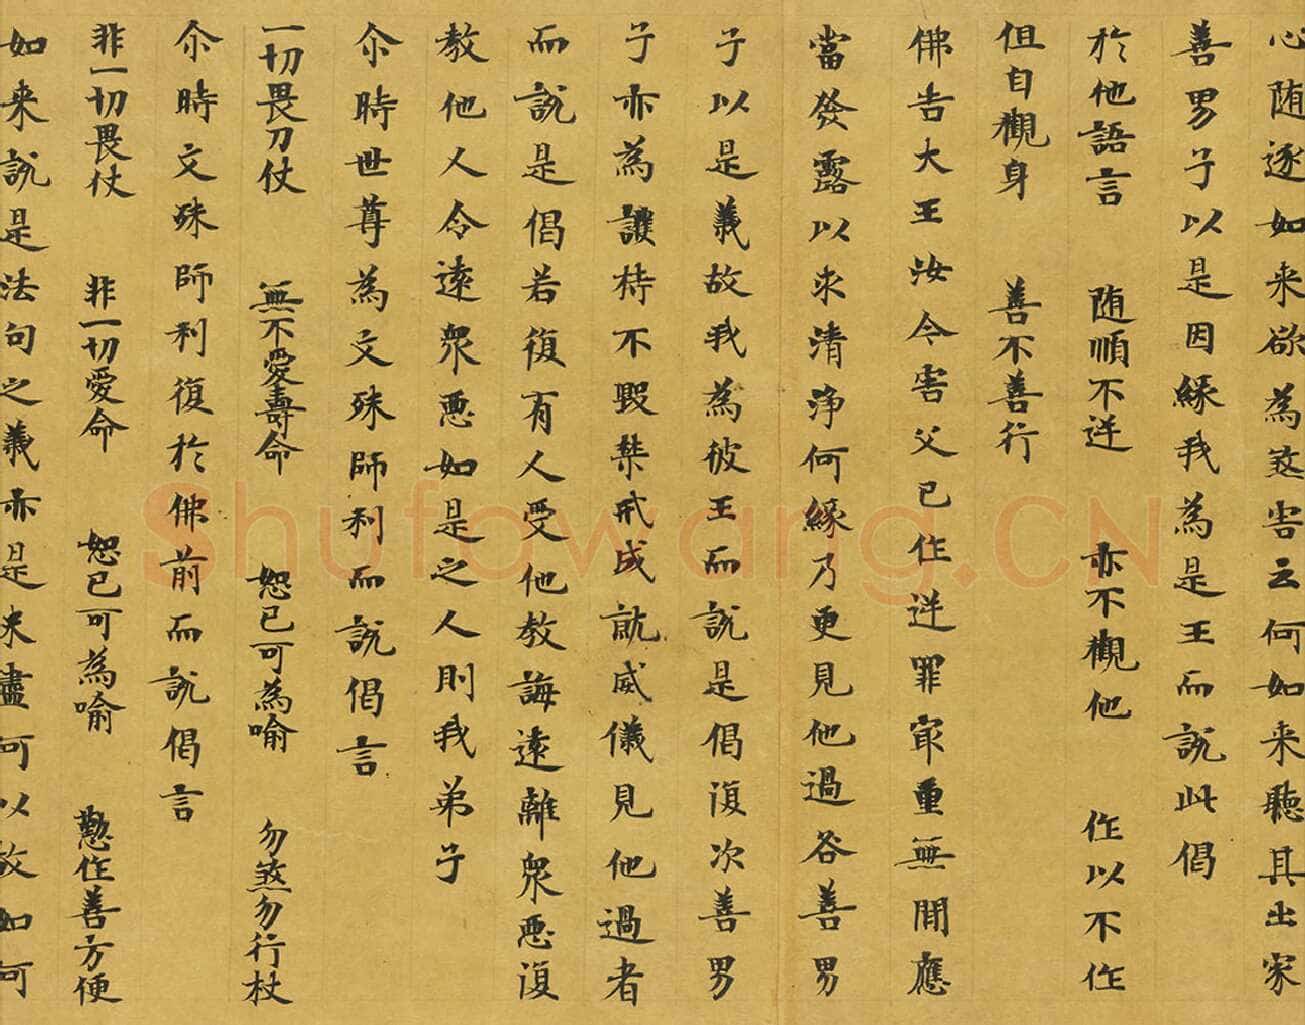 心随逐如来欲為煞害云何如来聽其出家
善男子以是因緣我為是王而說此偈
於他語言 随順不逆 亦不觀他 作以不作
但自觀身 善不善行
佛告大王汝今害父已作逆罪冣重無間應
當發露以求清淨何緣乃更見他過咎善男
子以是義故我為彼王而說是偈復次善男
子亦為護持不毀禁戒成就威儀見他過者
而說是偈若復有人受他教誨遠離衆惡復
教他人令遠衆惡如是之人則我弟子
尒時世尊為文殊師利而說偈言
一切畏刀仗 無不愛壽命 恕已可為喻 勿煞勿行杖
尒時文殊師利復於佛前而說偈言
非一切畏仗 非一切愛命 恕已可為喻 懃作善方便
如来說是法句之義亦是未盡何以故如阿
Shufawang.CN